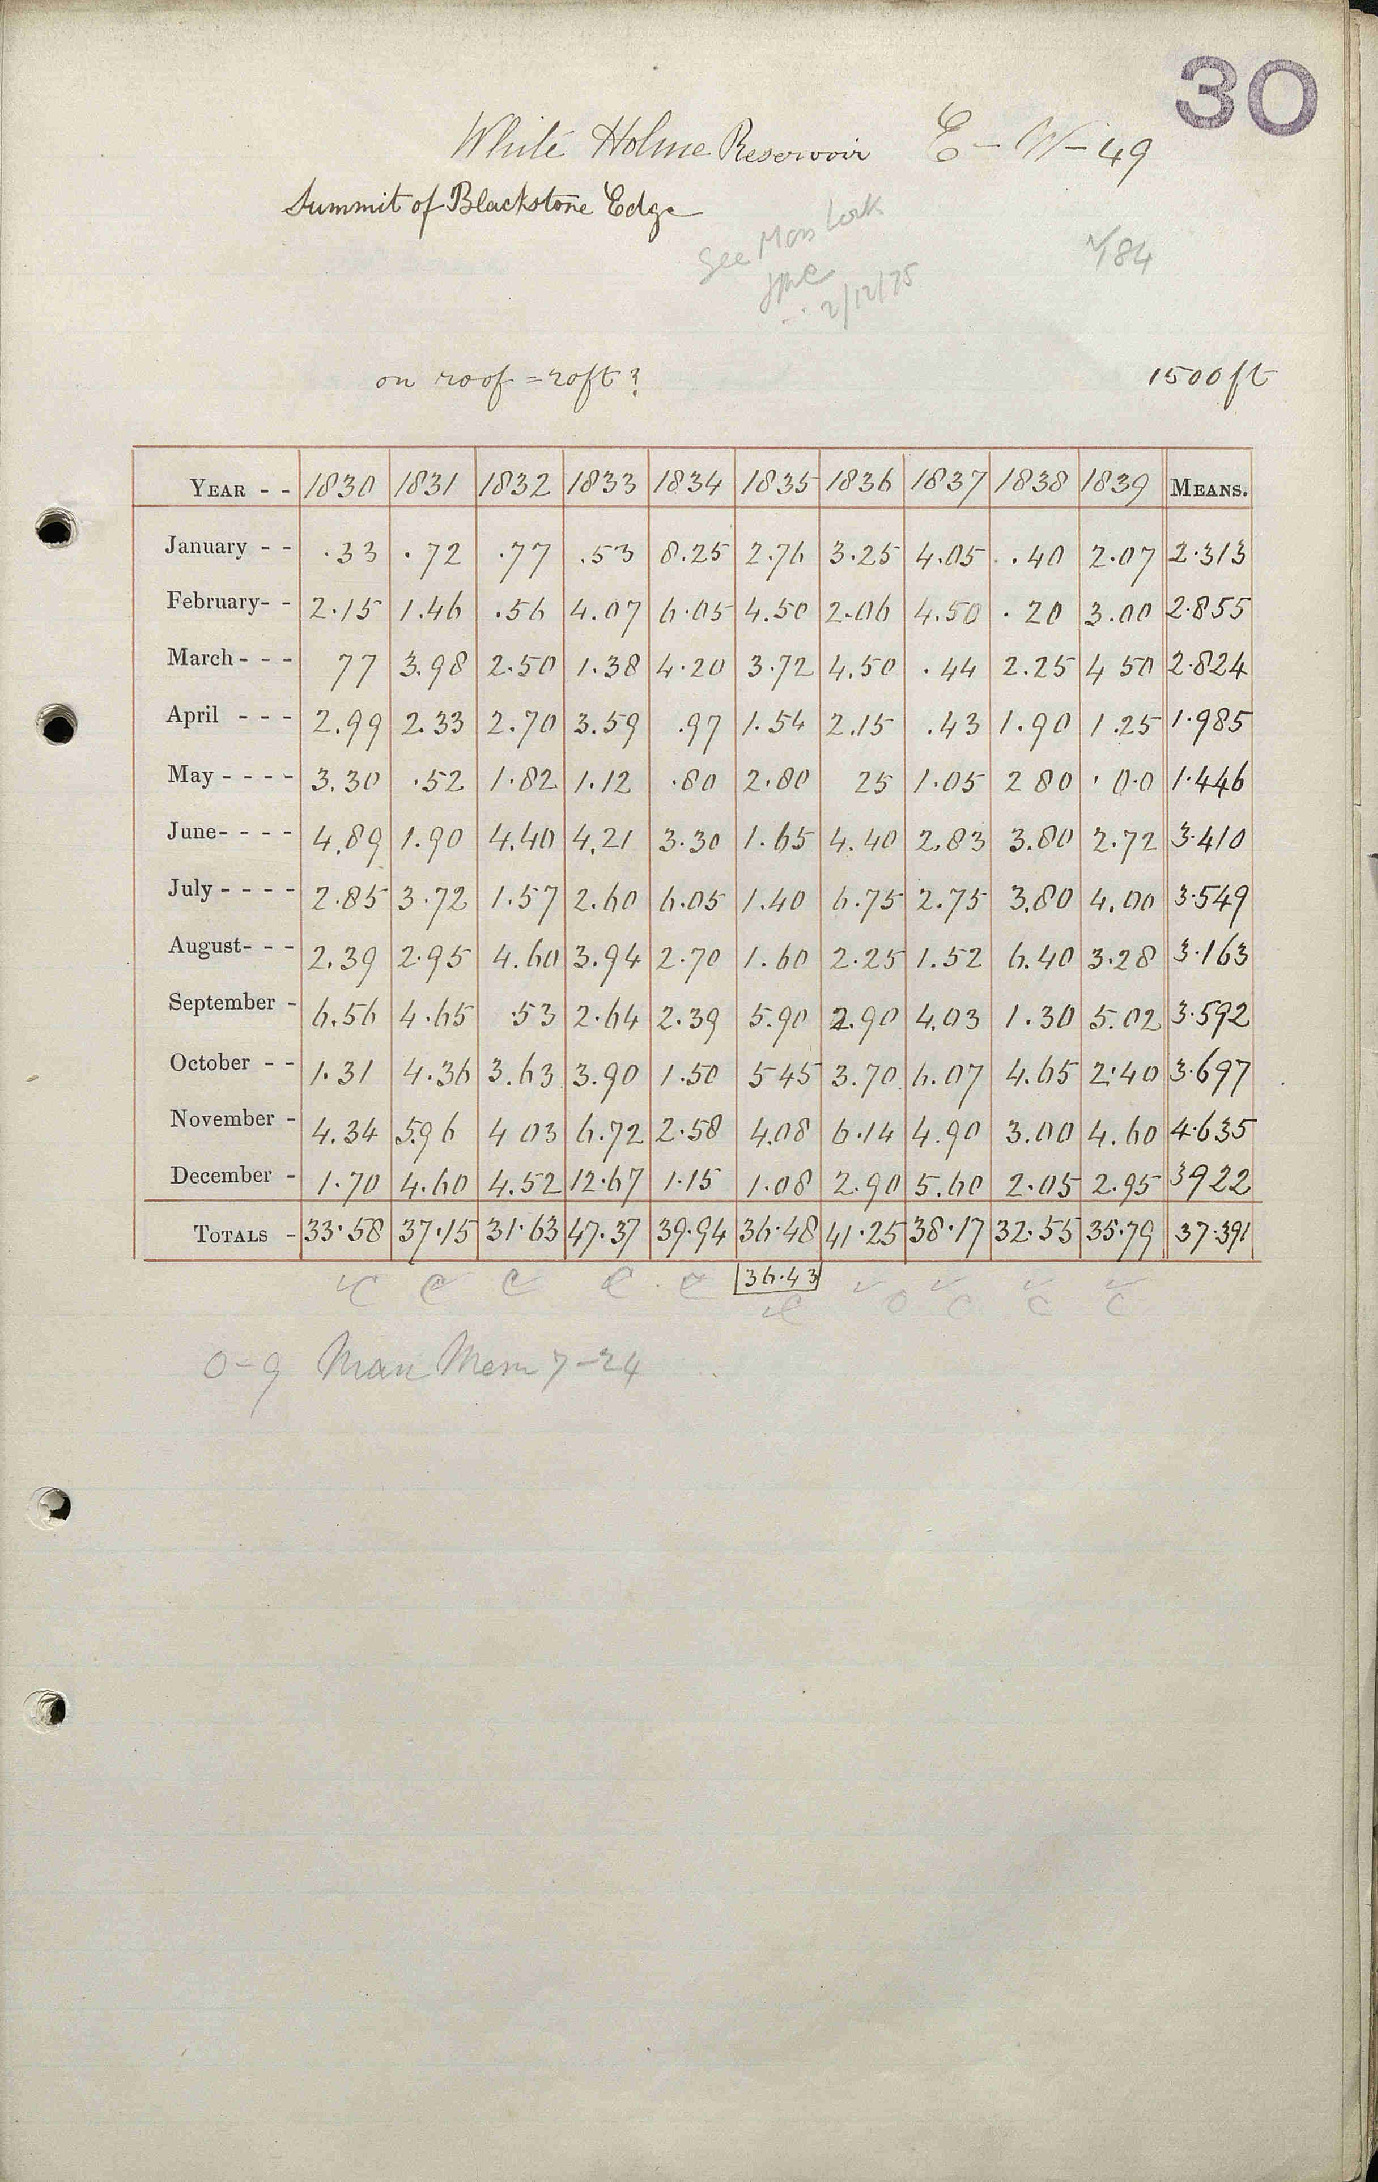 30
White Holme Reservoir E - W - 49
Summit of Blackstone Edge
See Moss Lock
2/12/75
184
on roof = 20ft? 1500ft
YEAR - - 1830 1831 1832 1833 1834 1835 1836 1837 1838 1839 MEANS.
January - - .33 .72 .77 .53 8.25 2.76 3.25 4.05 .40 2.07 2.313
February- - 2.15 1.46 .56 4.07 6.05 4.50 2.06 4.50 .20 3.00 2.855
March - - - 77 3.98 2.50 1.38 4.20 3.72 4.50 .44 2.25 4 50 2.824
April - - - 2.99 2.33 2.70 3.59 .97 1.54 2.15 .43 1.90 1.25 1.985
May - - - - 3.30 .52 1.82 1.12 .80 2.80 25 1.05 2 80 .00 1.446
June- - - - 4.89 1.90 4.40 4.21 3.30 1.65 4.40 2.83 3.80 2.72 3.410
July - - - - 2.85 3.72 1.57 2.60 6.05 1.40 6.75 2.75 3.80 4.00 3.549
August- - - 2.39 2.95 4.60 3.94 2.70 1.60 2.25 1.52 6.40 3.28 3.163
September - 6.56 4.65 .53 2.64 2.39 5.90 2.90 4.03 1.30 5.02 3.592
October - - 1.31 4.36 3.63 3.90 1.50 5 45 3.70 6.07 4.65 2.40 3.697
November - 4.34 5.96 4 03 6.72 2.58 4.08 6.14 4.90 3.00 4.60 4.635
December - 1.70 4.60 4.52 12.67 1.15 1.08 2.90 5.60 2.05 2.95 3922
TOTALS - 33.58 37.15 31.63 47.37 39.94 36.48 41.25 38.17 32.55 35.79 37.391
36.43
0-9 Man Mem 7-24